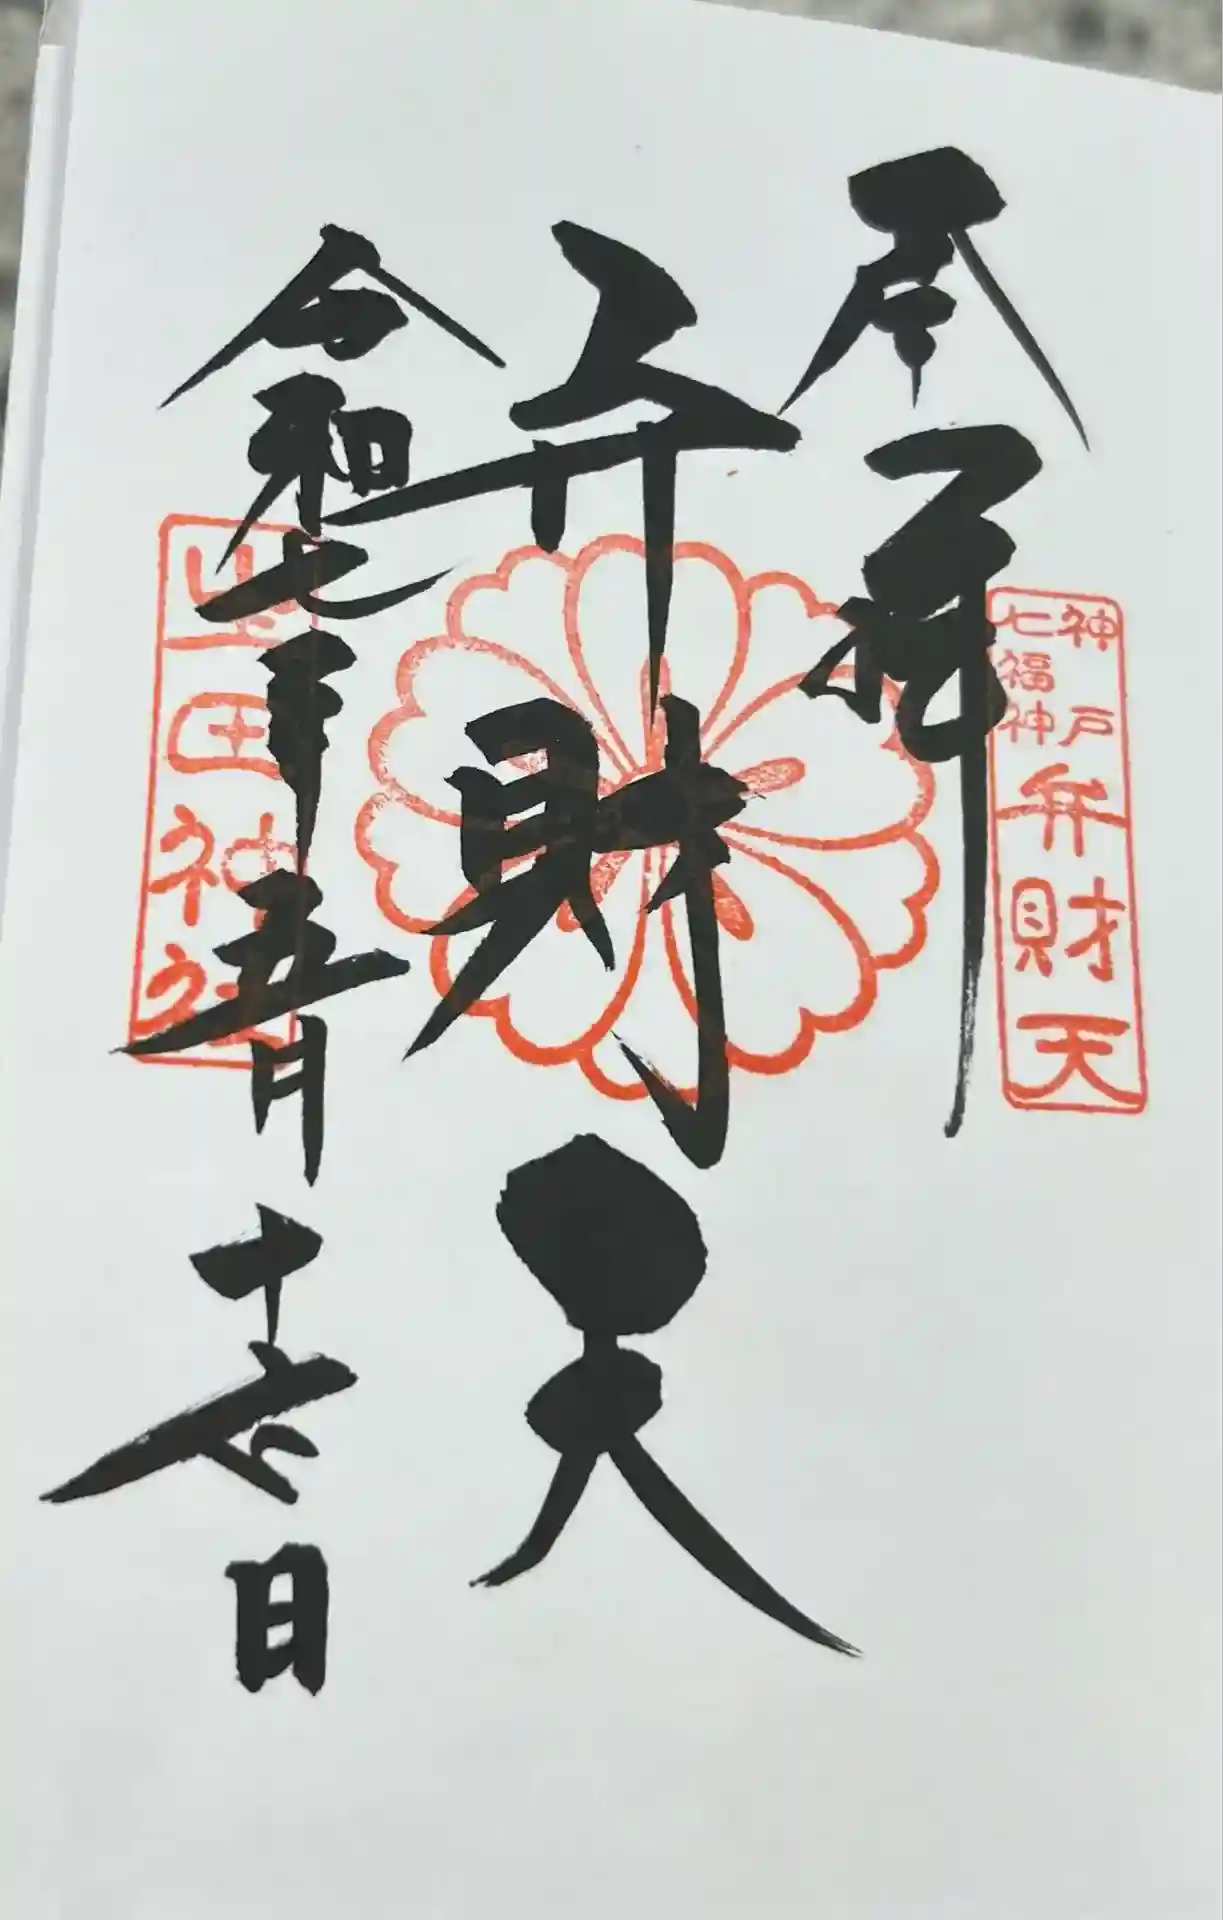 奉拝
神戸
七福神
弁財天
弁財天
令和七年五月十七日
生田神社